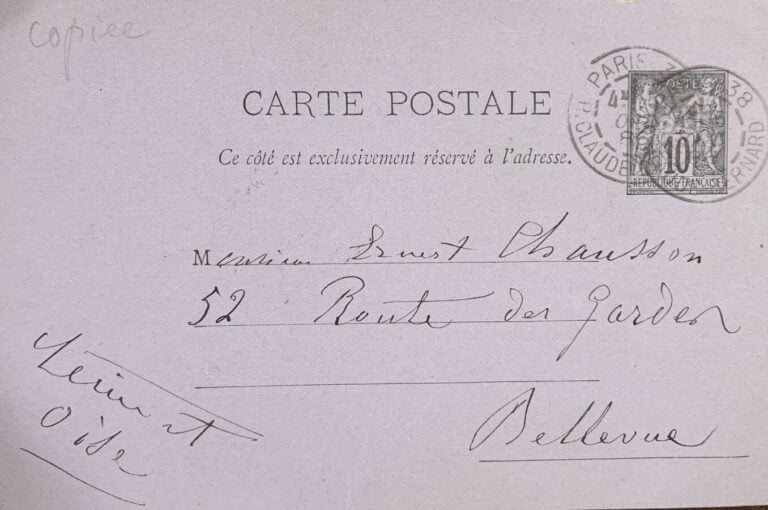 copiée
CARTE POSTALE
Ce côté est exclusivement réservé à l'adresse.
PARIS 38
R. CLAUDE BERNARD
POSTE
10
REPUBLIQUE FRANÇAISE
Monsieur Ernest Chausson
52 Route des Gardes
Bellevue
Seine et
Oise